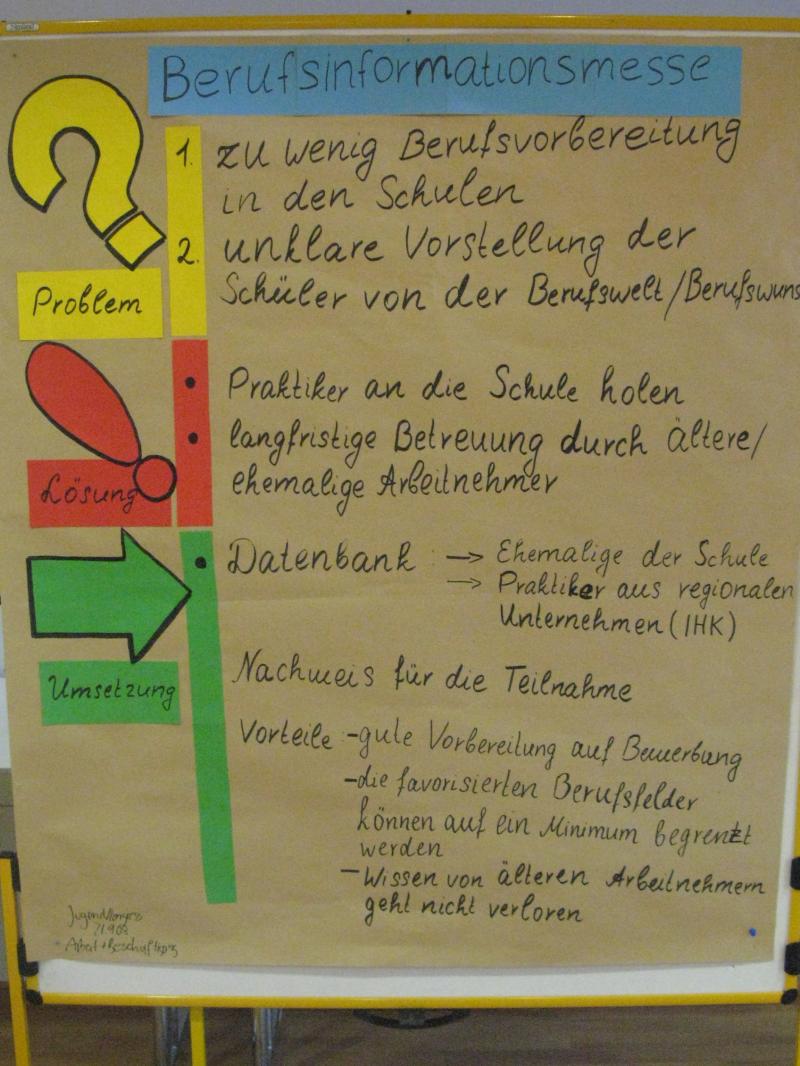 Berufsinformationsmesse
1. zu wenig Berufsvorbereitung
in den Schulen
2. unklare Vorstellung der
Schüler von der Berufswelt/Berufswuns
Problem
• Praktiker an die Schule holen
• langfristige Betreuung durch Ältere/
ehemalige Arbeitnehmer
Lösung
• Datenbank → Ehemalige der Schule
→ Praktiker aus regionalen
Unternehmen (IHK)
Nachweis für die Teilnahme
Umsetzung
Vorteile - gute Vorbereitung auf Bewerbung
- die favorisierten Berufsfelder
können auf ein Minimum begrenzt
werden
- Wissen von älteren Arbeitnehmern
geht nicht verloren
Arbeit + Beschäftigung